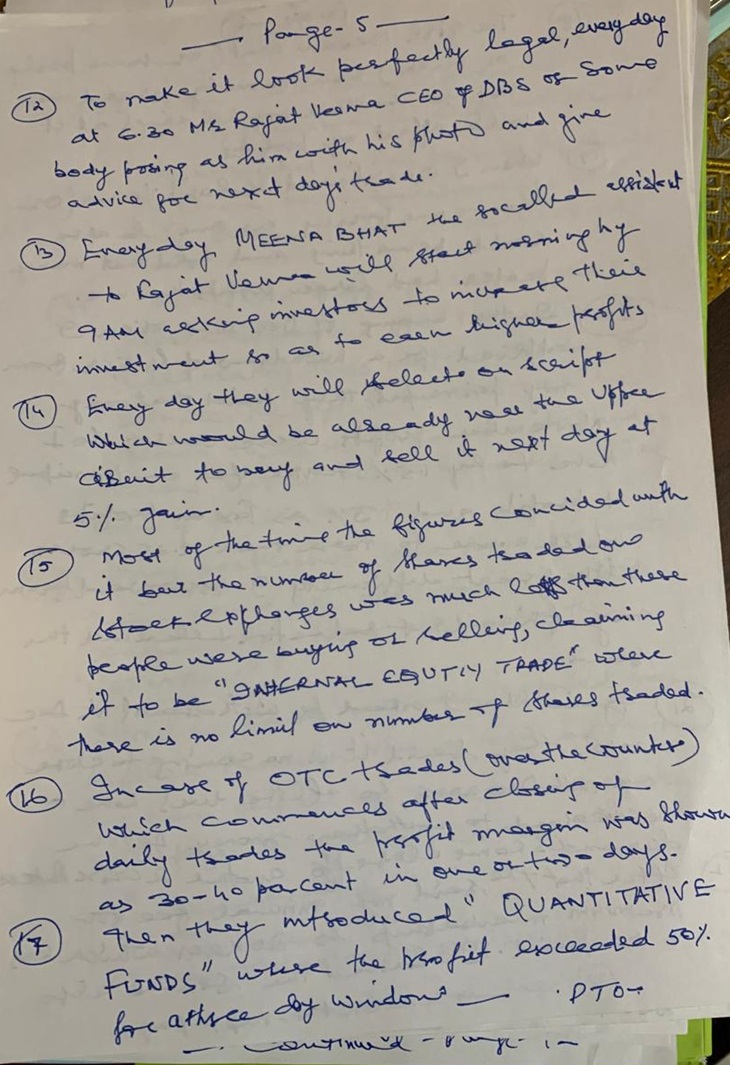 — Page-5 —
(12) To make it look perfectly legal, everyday
at 6.30 Mr Rajat Verma CEO of DBS or some
body posing as him with his photo and give
advice for next day's trade.
(13) Everyday MEENA BHAT the socalled assistant
to Rajat Verma will start morning by
9AM asking investors to increase their
investment so as to earn higher profits
(14) Every day they will select on script
which would be already near the upper
cibuit to buy and sell it next day at
5% gain.
(15) Most of the time the figures concided with
it but the number of shares traded on
stock exchanges was much less than these
people were buying or selling, claiming
it to be "INTERNAL EQUTIY TRADE" where
there is no limit on number of shares traded.
(16) Incase of OTC trades (over the counter)
which commences after closing of
daily trades the profit margin was shown
as 30-40 percent in one or two days.
(17) Then they introduced "QUANTITATIVE
FUNDS" where the profit exceeded 50%
for a three day window — . PTO-
continued -